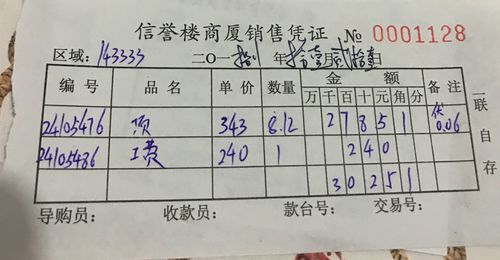 信誉楼商厦销售凭证 № 0001128
区域：143333 二〇一 年拾壹月贰拾壹日
编号 品名 单价 数量 金额 备注
万 千 百 十 元 角 分
24105476 项 343 8.12 2 7 8 5 1 0.06
24105486 工费 240 1 2 4 0
3 0 2 5 1
一联自存
导购员： 收款员： 款台号： 交易号：